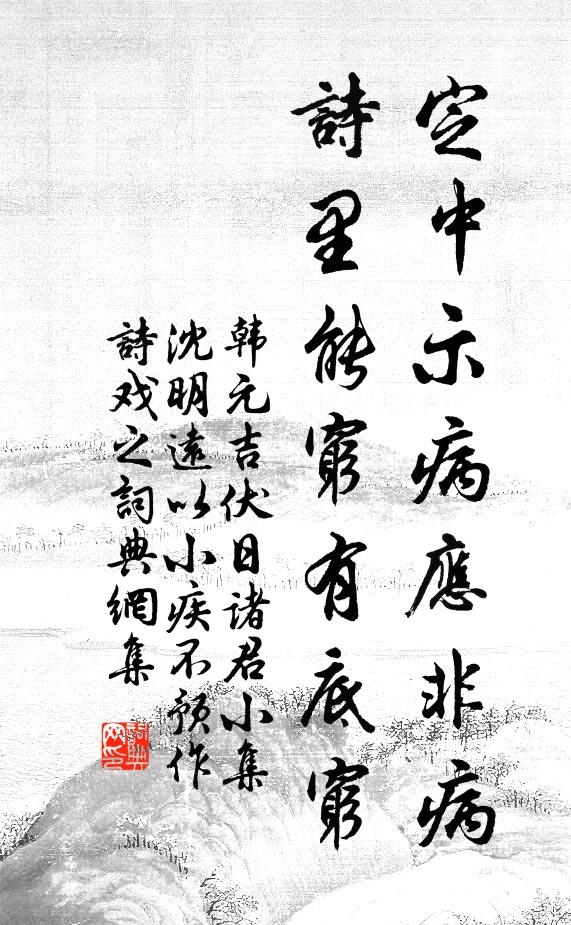 定中示病應非病
詩里能窮有底窮
韩元吉伏日诸君小集
沈明遠以小疾不预作
詩戏之詞典網集